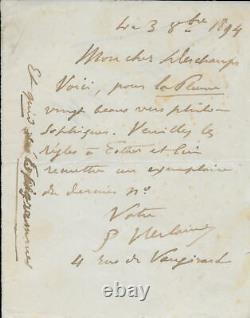 Le 3 9bre 1894
Mon cher Deschamps
Voici, pour la Plume
vingt beaux vers philoso
sophiques. Veuillez les
régler à Esther et lui
remettre un exemplaire
du dernier no.
Votre
P. Verlaine
4 rue de Vaugirard
Et quid des Epigrammes